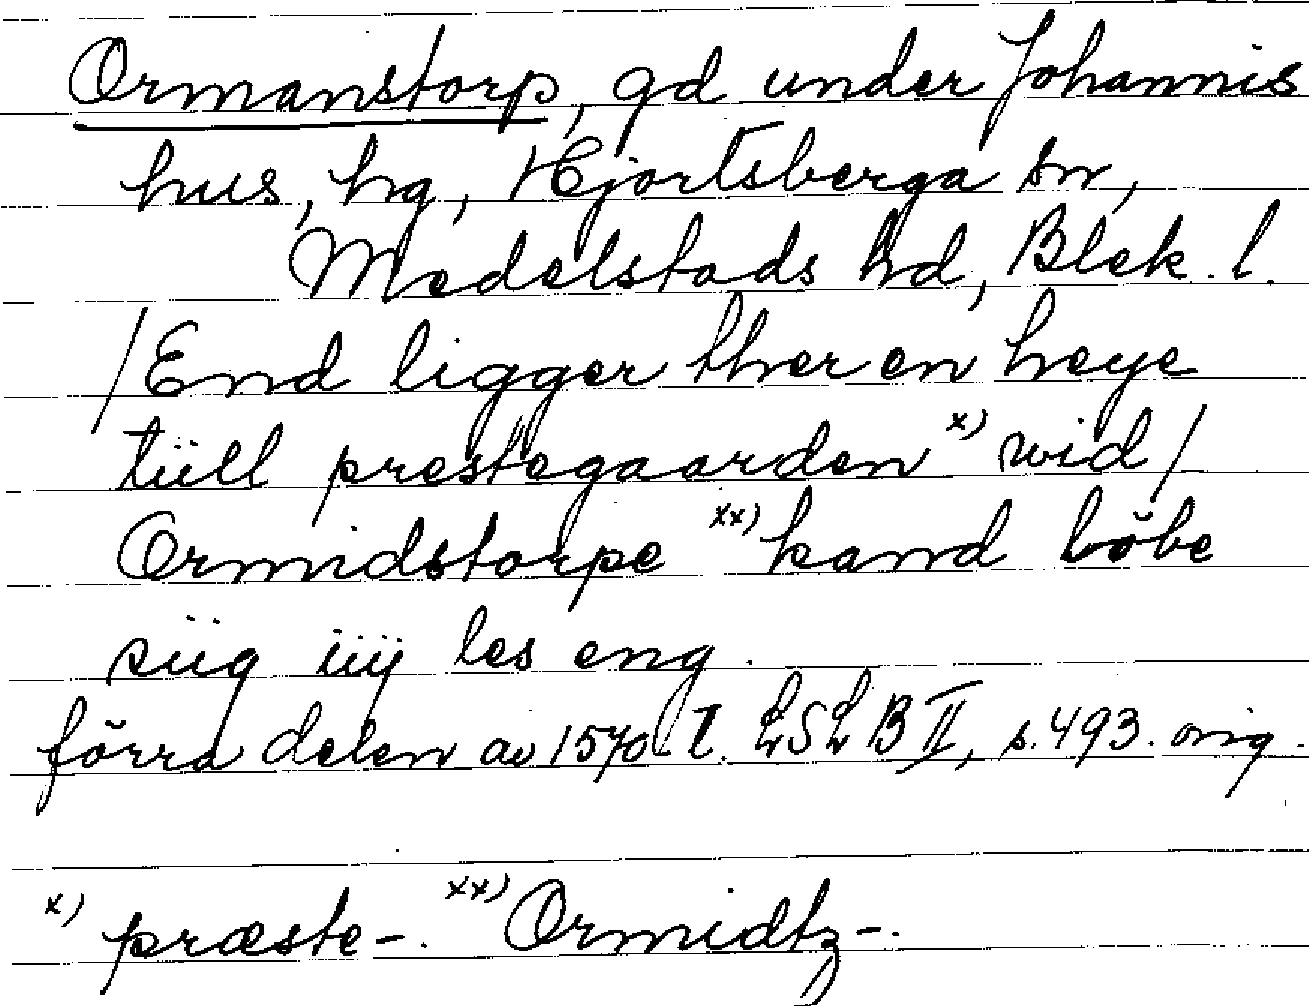 Ormanstorp, gd under Johannis
hus, hg, Hjortsberga sn,
Medelstads hd, Blek. l.
/End ligger ther en heye
tüll prestegaarden x) wid/
Ormidstorpe xx) kand böbe
siig iiij les eng.
förra delen av 1570-t. LSLB II, s. 493. orig.
x) præste-. xx) Ormidtz-.